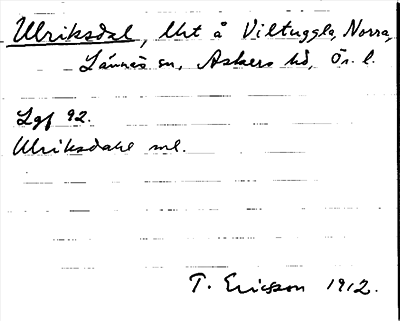 Ulriksdal, lht å Viltuggla, Norra,
Lännäs sn, Askers hd, Ör. l.
Lgf 92.
Ulriksdahl ml.
T. Ericsson 1912.